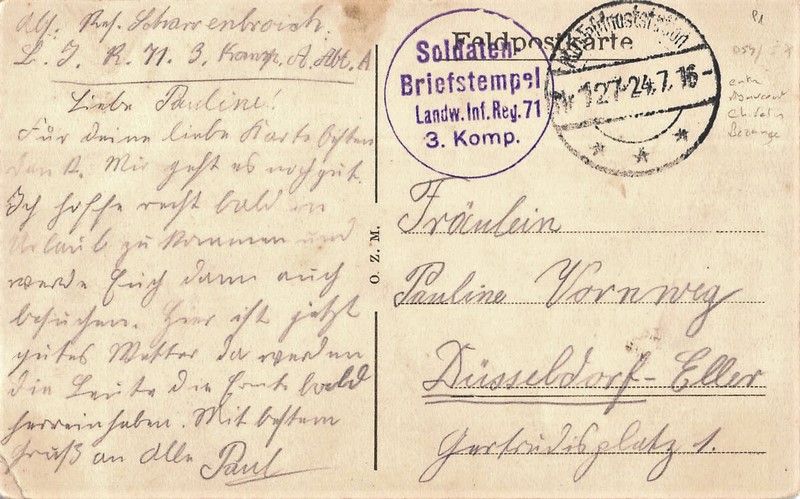 Abs. Res. Scharrenbroich.
L. I. R. 71. 3. Komp. A. Abt. A
Liebe Pauline!
Für deine liebe Karte besten
Dank. Mir geht es noch gut.
Ich hoffe recht bald in
Urlaub zu kommen und
werde Euch dann auch
besuchen. Hier ist jetzt
gutes Wetter da werden
die Leute die Ernte bald
herreinhaben. Mit bestem
Gruß an Alle Paul
O. Z. M.
Feldpostkarte
Soldaten
Briefstempel
Landw. Inf. Reg. 71
3. Komp.
Nr 127 - 24.7.16
* * *
Fräulein
Pauline Vornweg
Düsseldorf-Eller
Gertrudisplatz 1.
Bezange